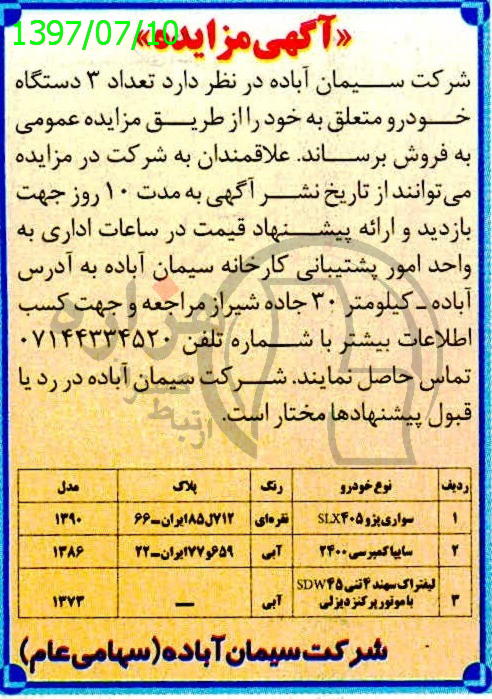 1397/07/10
«آگهی مزایده»
شرکت سیمان آباده در نظر دارد تعداد ۳ دستگاه
خودرو متعلق به خود را از طریق مزایده عمومی
به فروش برساند. علاقمندان به شرکت در مزایده
می‌توانند از تاریخ نشر آگهی به مدت ۱۰ روز جهت
بازدید و ارائه پیشنهاد قیمت در ساعات اداری به
واحد امور پشتیبانی کارخانه سیمان آباده به آدرس
آباده-کیلومتر ۳۰ جاده شیراز مراجعه و جهت کسب
اطلاعات بیشتر با شماره تلفن ۰۷۱۴۴۳۳۴۵۲۰
تماس حاصل نمایند. شرکت سیمان آباده در رد یا
قبول پیشنهادها مختار است.
ردیف نوع خودرو رنگ پلاک مدل
۱ سواری پژو ۴۰۵ SLX نقره‌ای ۷۱۲ل۸۵ایران-۶۶ ۱۳۹۰
۲ سایپا کمپرسی ۲۴۰۰ آبی ۶۵۹و۷۷ایران-۲۲ ۱۳۸۶
۳ لیفتراک سهند ۴ تنی SDW۴۵ با موتور پرکنز دیزلی آبی — ۱۳۷۳
شرکت سیمان آباده (سهامی عام)
هزاره
ارتباط